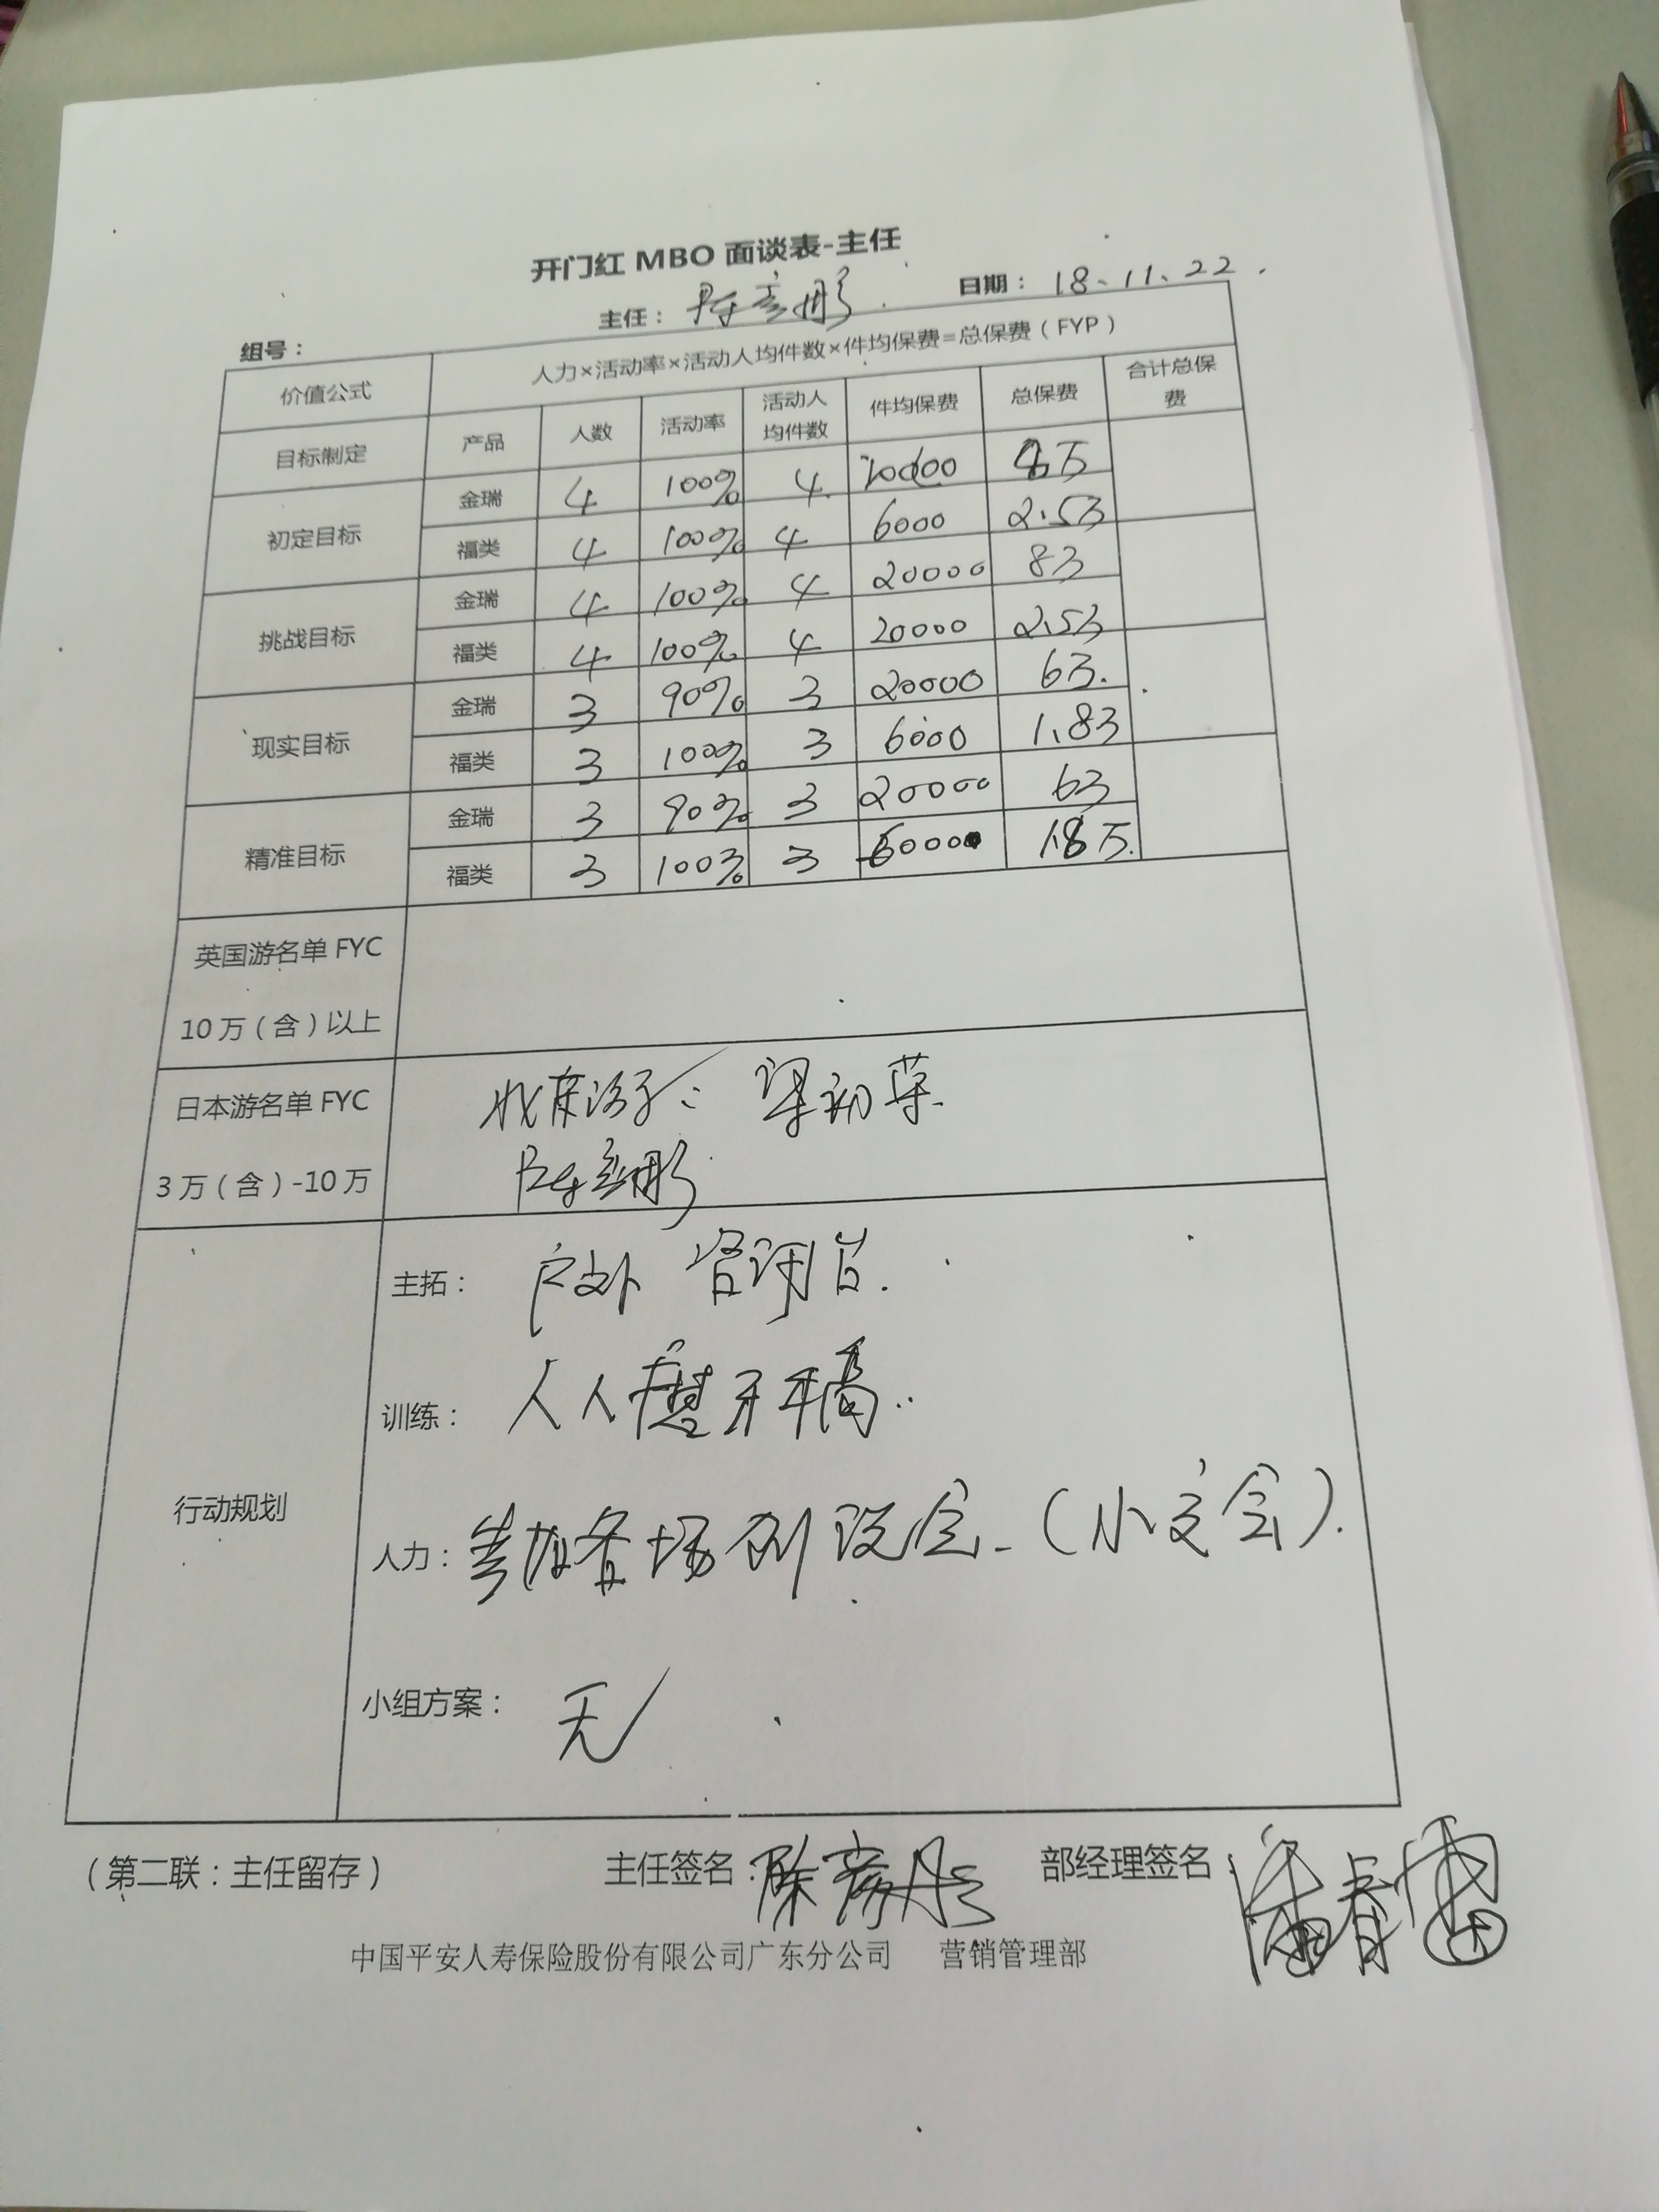 开门红 MBO 面谈表-主任
组号： 主任：陈彦彤 日期：18、11、22.
价值公式 人力×活动率×活动人均件数×件均保费=总保费（FYP）
目标制定 产品 人数 活动率 活动人均件数 件均保费 总保费 合计总保费
初定目标 金瑞 4 100% 4 8万
福类 4 100% 4 6000 2.5万
挑战目标 金瑞 4 100% 4 20000 8万
福类 4 100% 4 20000 2.5万
现实目标 金瑞 3 90% 3 20000 6万.
福类 3 100% 3 6000 1.8万
精准目标 金瑞 3 90% 3 20000 6万
福类 3 100% 3 1.8万.
英国游名单 FYC
10 万（含）以上
日本游名单 FYC
3 万（含）-10 万
陈彦彤
行动规划
主拓： 户外 咨询台.
训练： 人人 通关
人力： 参加各场创说会.（小交会）.
小组方案： 无
（第二联：主任留存） 主任签名：陈彦彤 部经理签名：潘春雷
中国平安人寿保险股份有限公司广东分公司 营销管理部